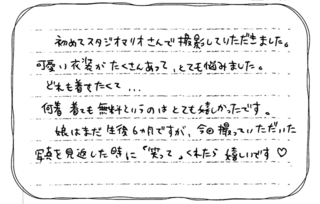 初めてスタジオマリオさんで撮影していただきました。
可愛い衣装がたくさんあって、とても悩みました。
どれも着てたくて...
何着 着ても無料というのはとても嬉しかったです。
娘はまだ生後6ヶ月ですが、今回撮っていただいた
写真を見返した時に「笑って」くれたら嬉しいです♡